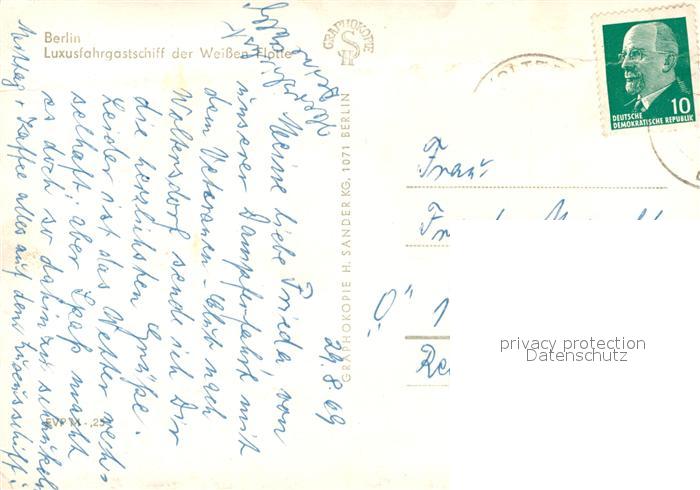 Berlin
Luxusfahrgastschiff der Weißen Flotte
GRAPHOKOPIE
H S
29.8.69
Meine liebe Frieda, von
unserer Dampferfahrt mit
dem Veteranen-Club nach
Woltersdorf sende ich Dir
die herzlichsten Grüße.
Leider ist das Wetter wech-
selhaft, aber Spaß macht
es doch so dahin zu schaukeln
Mittag + Kaffee alles auf dem Luxusschiff.
EVP M -,25
GRAPHOKOPIE H. SANDER KG, 1071 BERLIN
10
DEUTSCHE
DEMOKRATISCHE REPUBLIK
Frau
"O" 1
privacy protection
Datenschutz